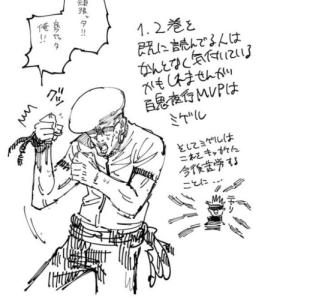 頑張ッタ!!
良カッタ
俺!!
グッ
1.2巻を
既に読んでる人は
なんとなく気付いている
かもしれませんが
百鬼夜行MVPは
ミゲル
そしてミゲルは
これをきっかけに
今後苦労する
ことに…